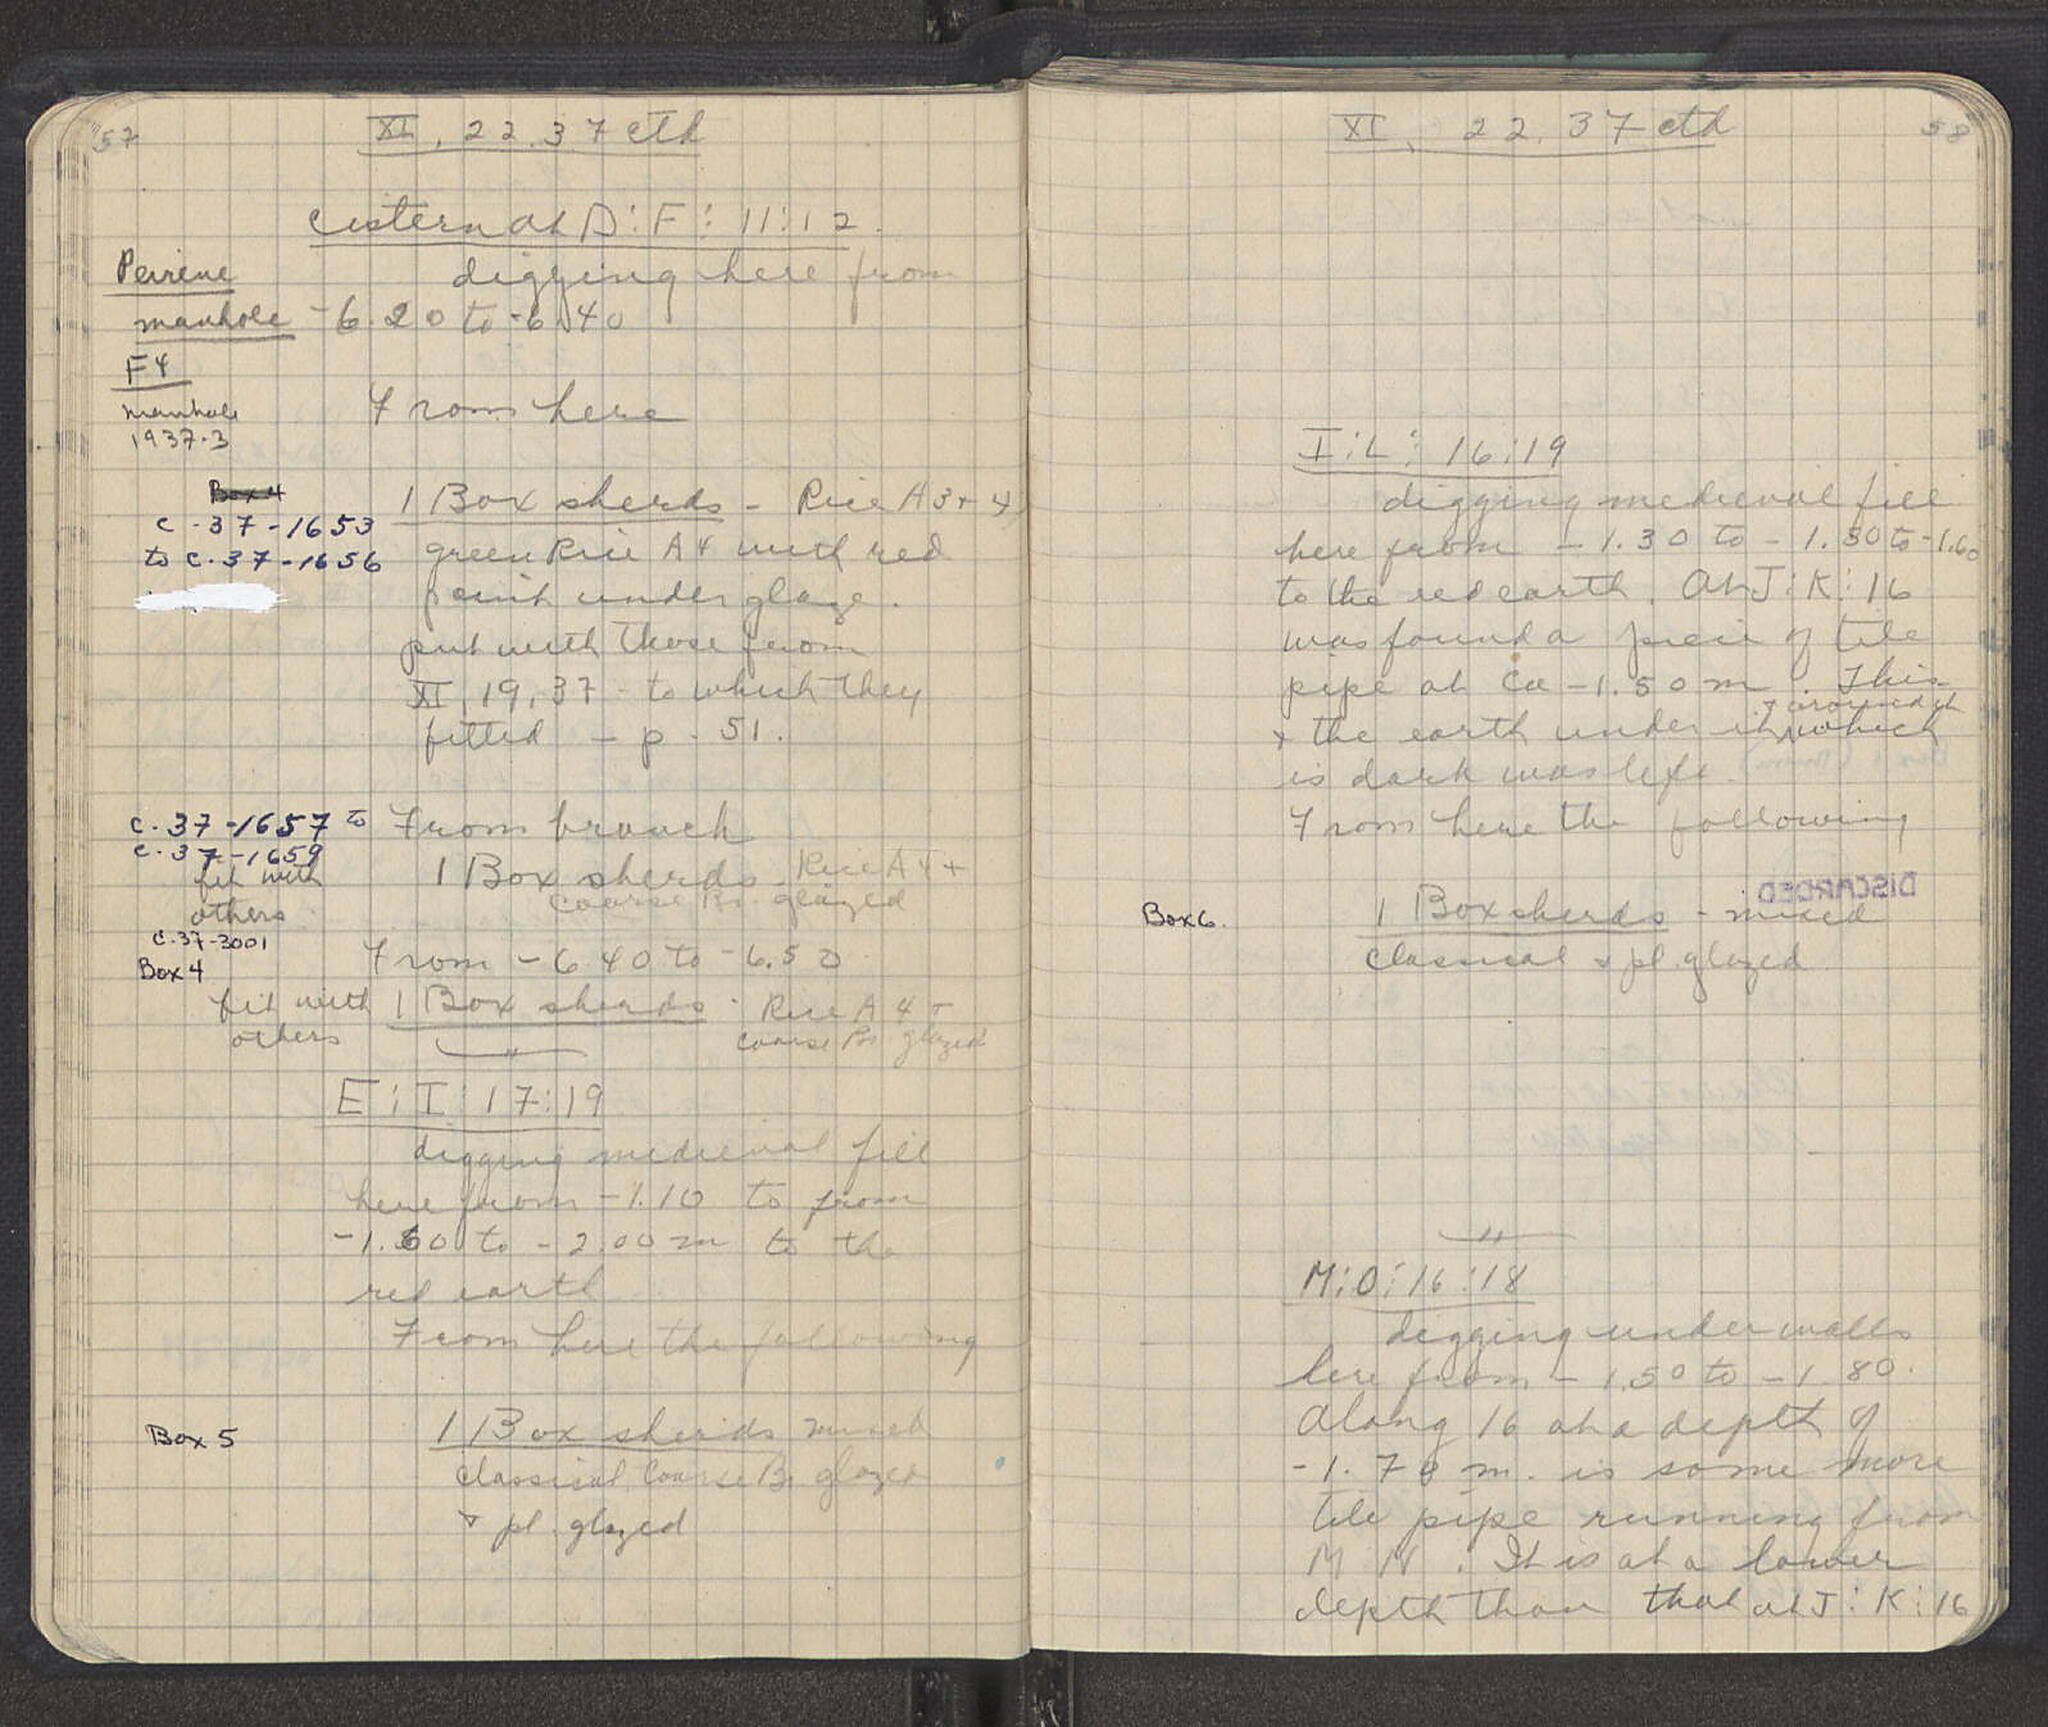 57
XI, 22.37 ctd
cistern at D:F:11:12.
Peirene digging here from
manhole -6.20 to -6.40
F4
manhole
1937-3
From here
Box 4
1 Box sherds - Rice A3 + 4
C-37-1653
to C.37-1656
green Rice A4 with red
paint under glaze.
put with those from
XI, 19, 37 - to which they
fitted - p. 51.
C.37-1657 to
C.37-1659
fit with
others
From branch
1 Box sherds - Rice A4 +
coarse Br. glazed
C.37-3001
Box 4
From -6.40 to -6.50
fit with
others
1 Box sherds - Rice A4 +
coarse Br glazed
"
E:I:17:19
digging medieval fill
here from -1.10 to from
-1.60 to -2.00 m to the
red earth
From here the following
Box 5
1 Box sherds mixed
classical Coarse Br. glazed
+ pl. glazed
XI, 22.37 ctd
58
I:L:16:19
digging medieval fill
here from -1.30 to -1.50 to -1.60
to the red earth. At J:K:16
was found a piece of tile
pipe at ca -1.50 m. This
+ around it
+ the earth under it which
is dark was left.
From here the following
DISCARDED
Box 6.
1 Box sherds - mixed
classical + pl. glazed
"
M:O:16:18
digging under walls
here from -1.50 to -1.80.
Along 16 at a depth of
-1.70 m. is some more
tile pipe running from
M N. It is at a lower
depth than that at J:K:16